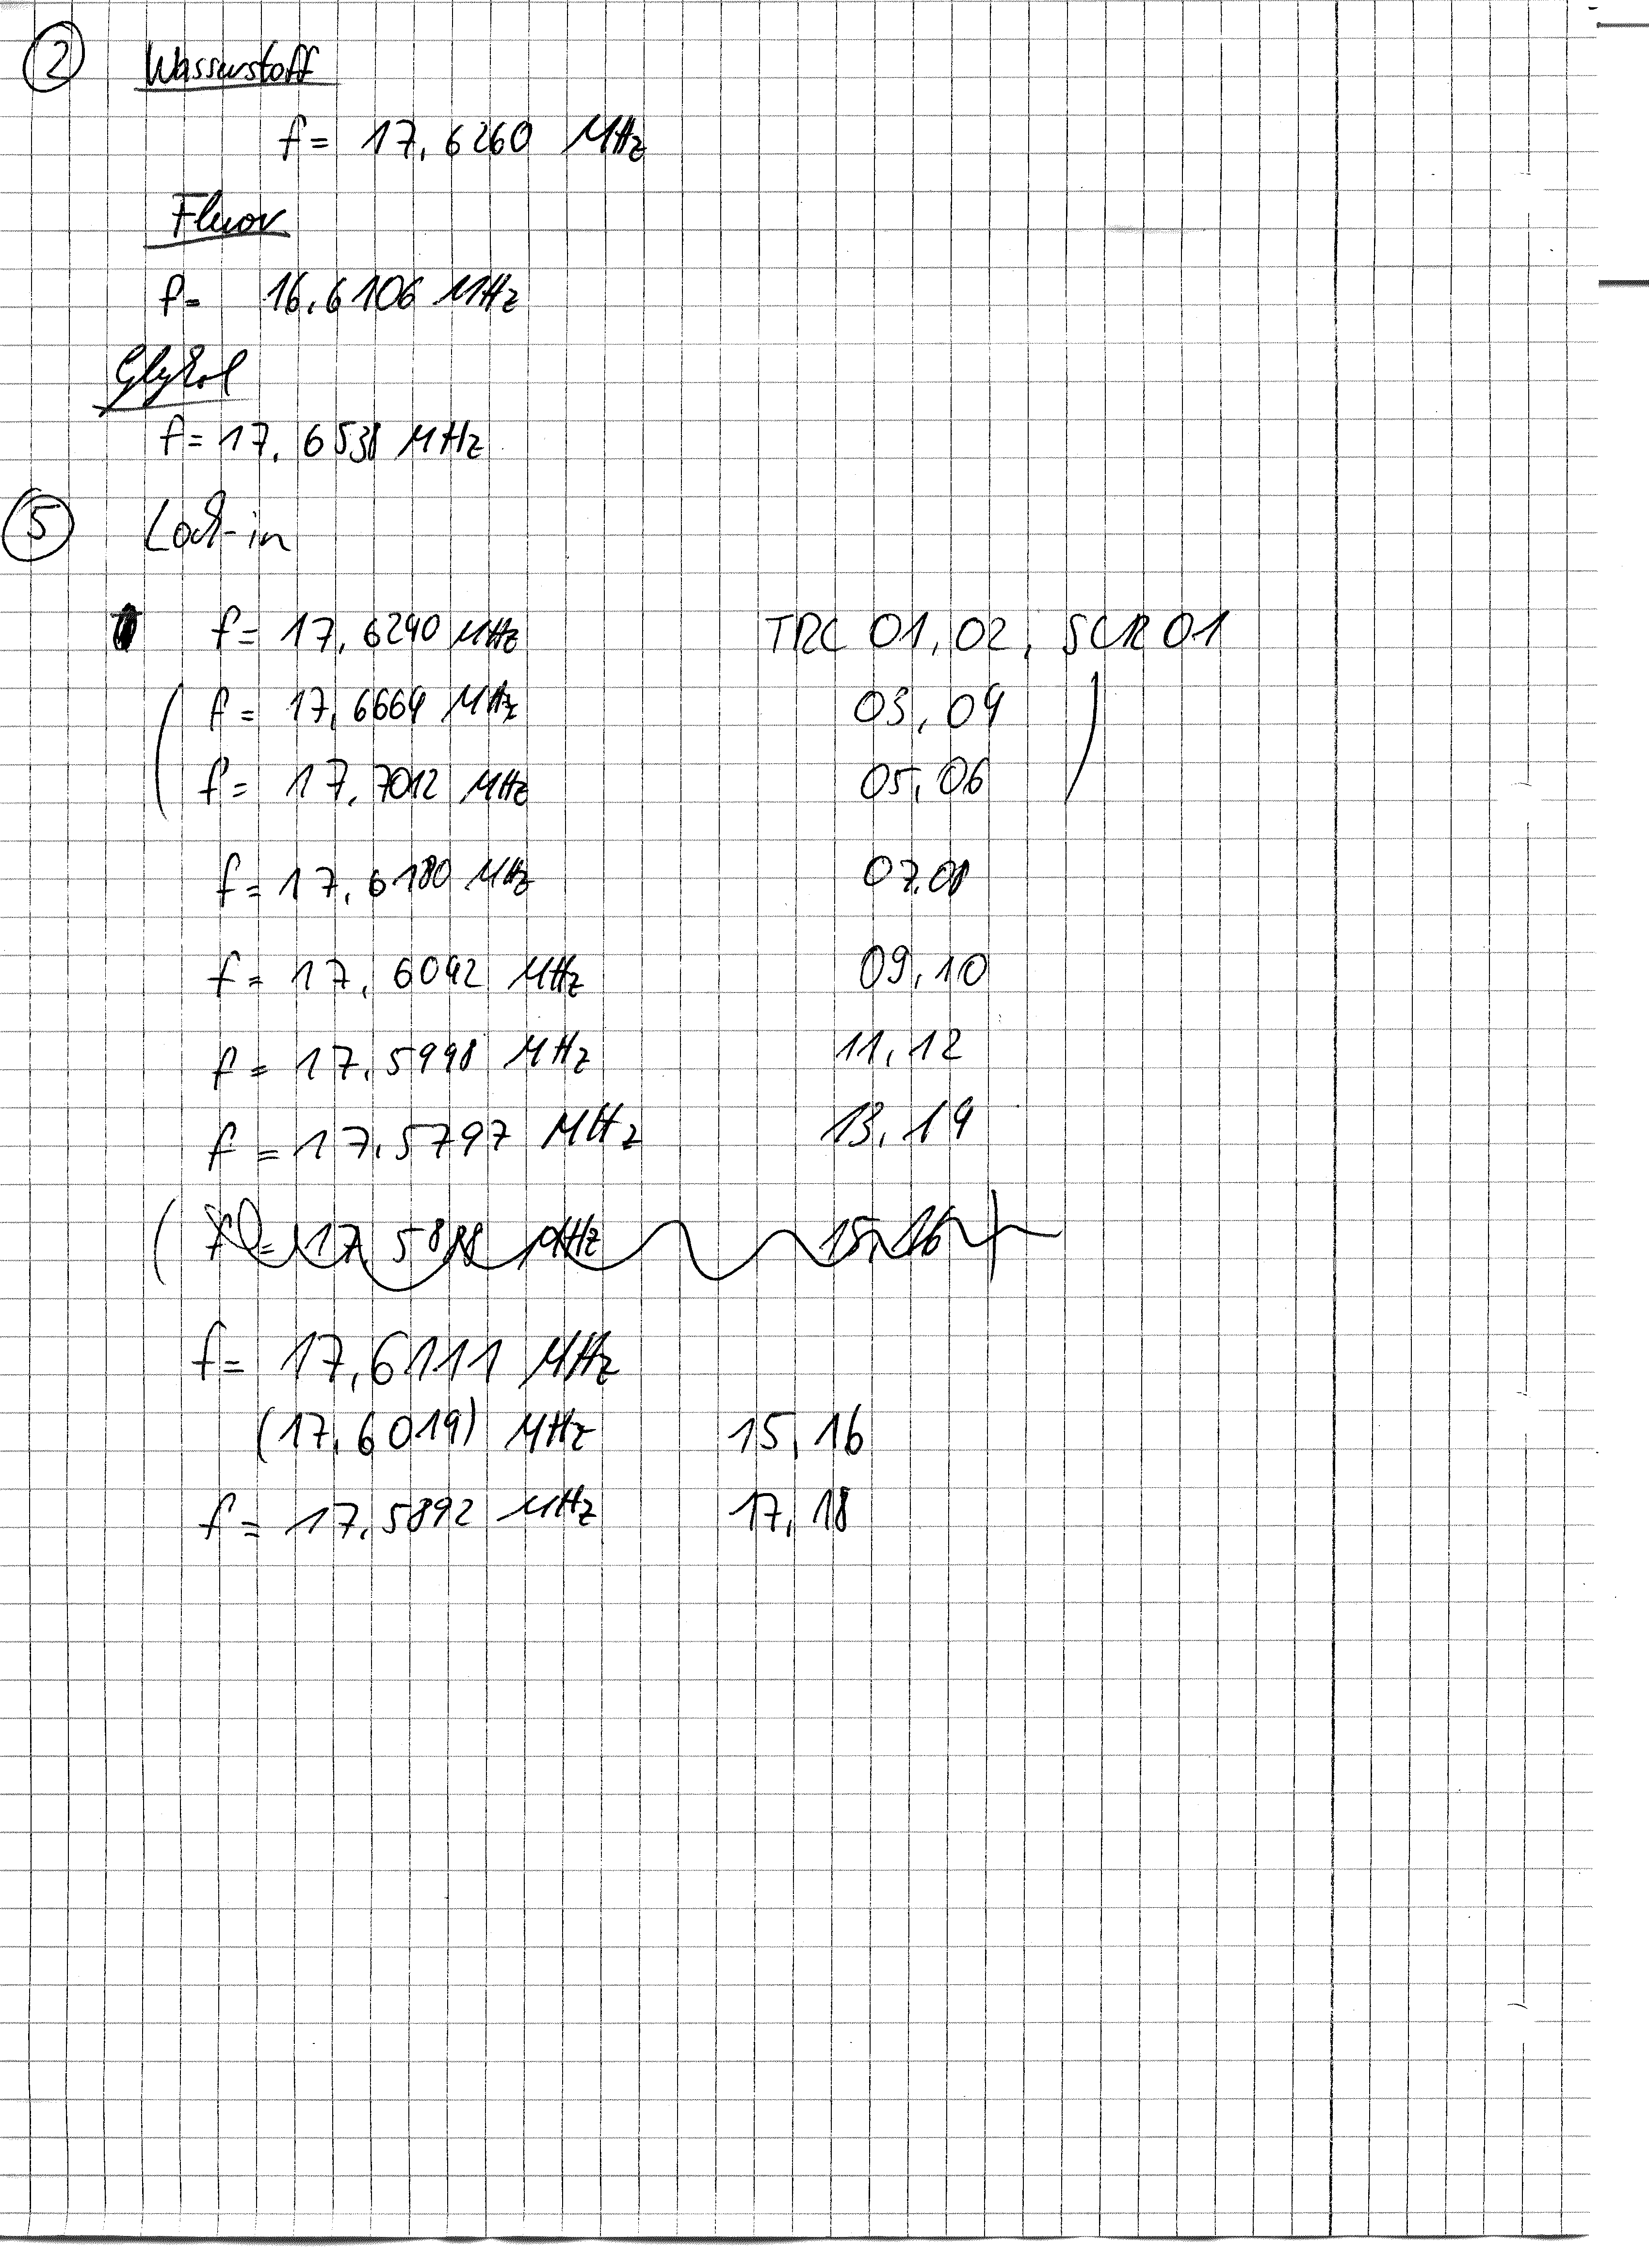 2 Wasserstoff
f = 17,6260 MHz
Fluor
f = 16,6106 MHz
Glykol
f = 17,6538 MHz
5 Lock-in
f = 17,6240 MHz TRC 01, 02, SCR 01
( f = 17,6664 MHz 03, 04 )
f = 17,7012 MHz 05, 06
f = 17,6180 MHz 07,08
f = 17,6092 MHz 09,10
f = 17,5998 MHz 11,12
f = 17,5797 MHz 13,14
( = 17, MHz 15,16 )
f = 17,6111 MHz
(17,6019) MHz 15,16
f = 17,5892 MHz 17,18